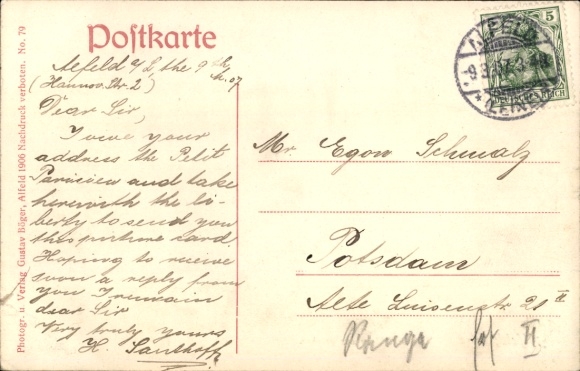 Postkarte
Photogr. u Verlag Gustav Böger, Alfeld 1906 Nachdruck verboten. No. 79
Alfeld a/L, the 9th
(Hannov. Str. 2) 07
Dear Sir,
I owe your
address the Petit
Parisien and take
herewith the li-
berty to send you
this picture card.
Hoping to receive
soon a reply from
you I remain
dear Sir
Very truly yours
H. Santhoff
Mr. Egon Schmalz
Potsdam
Alte Luisenstr 21 II
II
ALFELD
(LEINE)
5